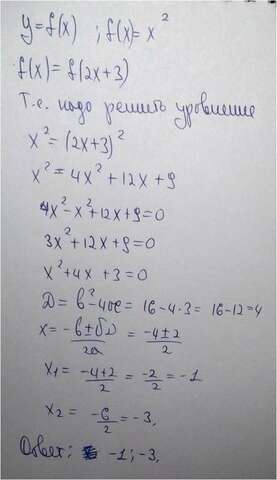 y=f(x) ; f(x)=x²
f(x)=f(2x+3)
Т.е. надо решить уровнение
x²=(2x+3)²
x²=4x²+12x+9
4x²-x²+12x+9=0
3x²+12x+9=0
x²+4x+3=0
D=b²-4ac=16-4·3=16-12=4
x=\frac{-b±√D}{2a}=\frac{-4±2}{2}
x₁=\frac{-4+2}{2}=\frac{-2}{2}=-1
x₂=\frac{-6}{2}=-3,
Ответ: -1; -3,